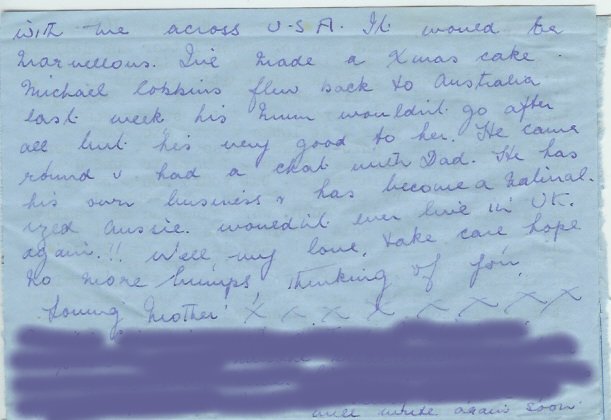 with me across U.S.A. It would be
marvellous. I've made a Xmas cake.
Michael Cobbins flew back to Australia
last week his Mum wouldn't go after
all but his very good to her. He came
round & had a chat with Dad. He has
his own business & has become a natinal-
ized Aussie. wouldn't ever live in U.K.
again!! Well my love, take care hope
no more bumps Thinking of you
Loving Mother X X X X X X X X X
will write again soon